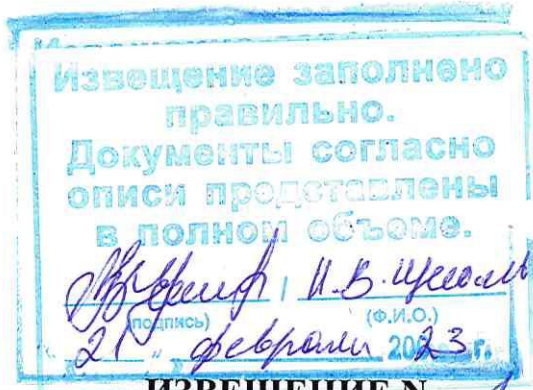 Извещение заполнено
правильно.
Документы согласно
описи представлены
в полном объеме.
И.В.
(подпись) (Ф.И.О.)
21 " февраля 2023 г.
ИЗВЕЩЕНИЕ N